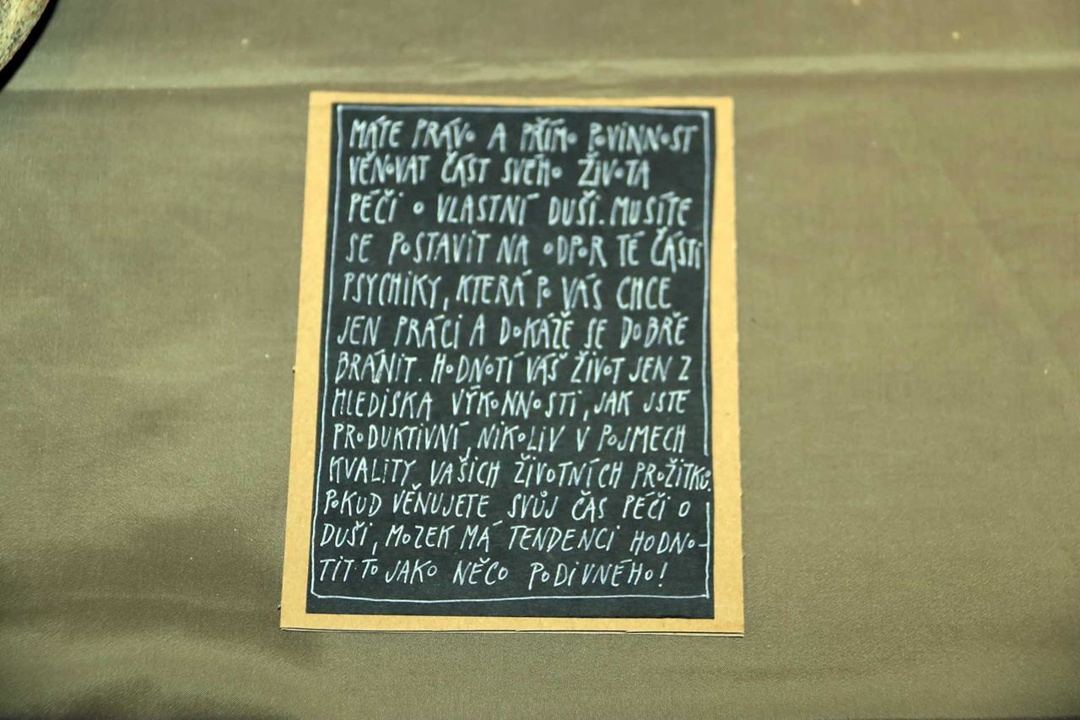 MÁTE PRÁVO A PŘÍMO POVINNOST
VĚNOVAT ČÁST SVÉHO ŽIVOTA
PÉČI O VLASTNÍ DUŠI. MUSÍTE
SE POSTAVIT NA ODPOR TÉ ČÁSTI
PSYCHIKY, KTERÁ PO VÁS CHCE
JEN PRÁCI A DOKÁŽE SE DOBŘE
BRÁNIT. HODNOTÍ VÁŠ ŽIVOT JEN Z
HLEDISKA VÝKONNOSTI, JAK JSTE
PRODUKTIVNÍ, NIKOLIV V POJMECH
KVALITY VAŠICH ŽIVOTNÍCH PROŽITKŮ.
POKUD VĚNUJETE SVŮJ ČAS PÉČI O
DUŠI, MOZEK MÁ TENDENCI HODNO-
TIT TO JAKO NĚCO PODIVNÉHO!